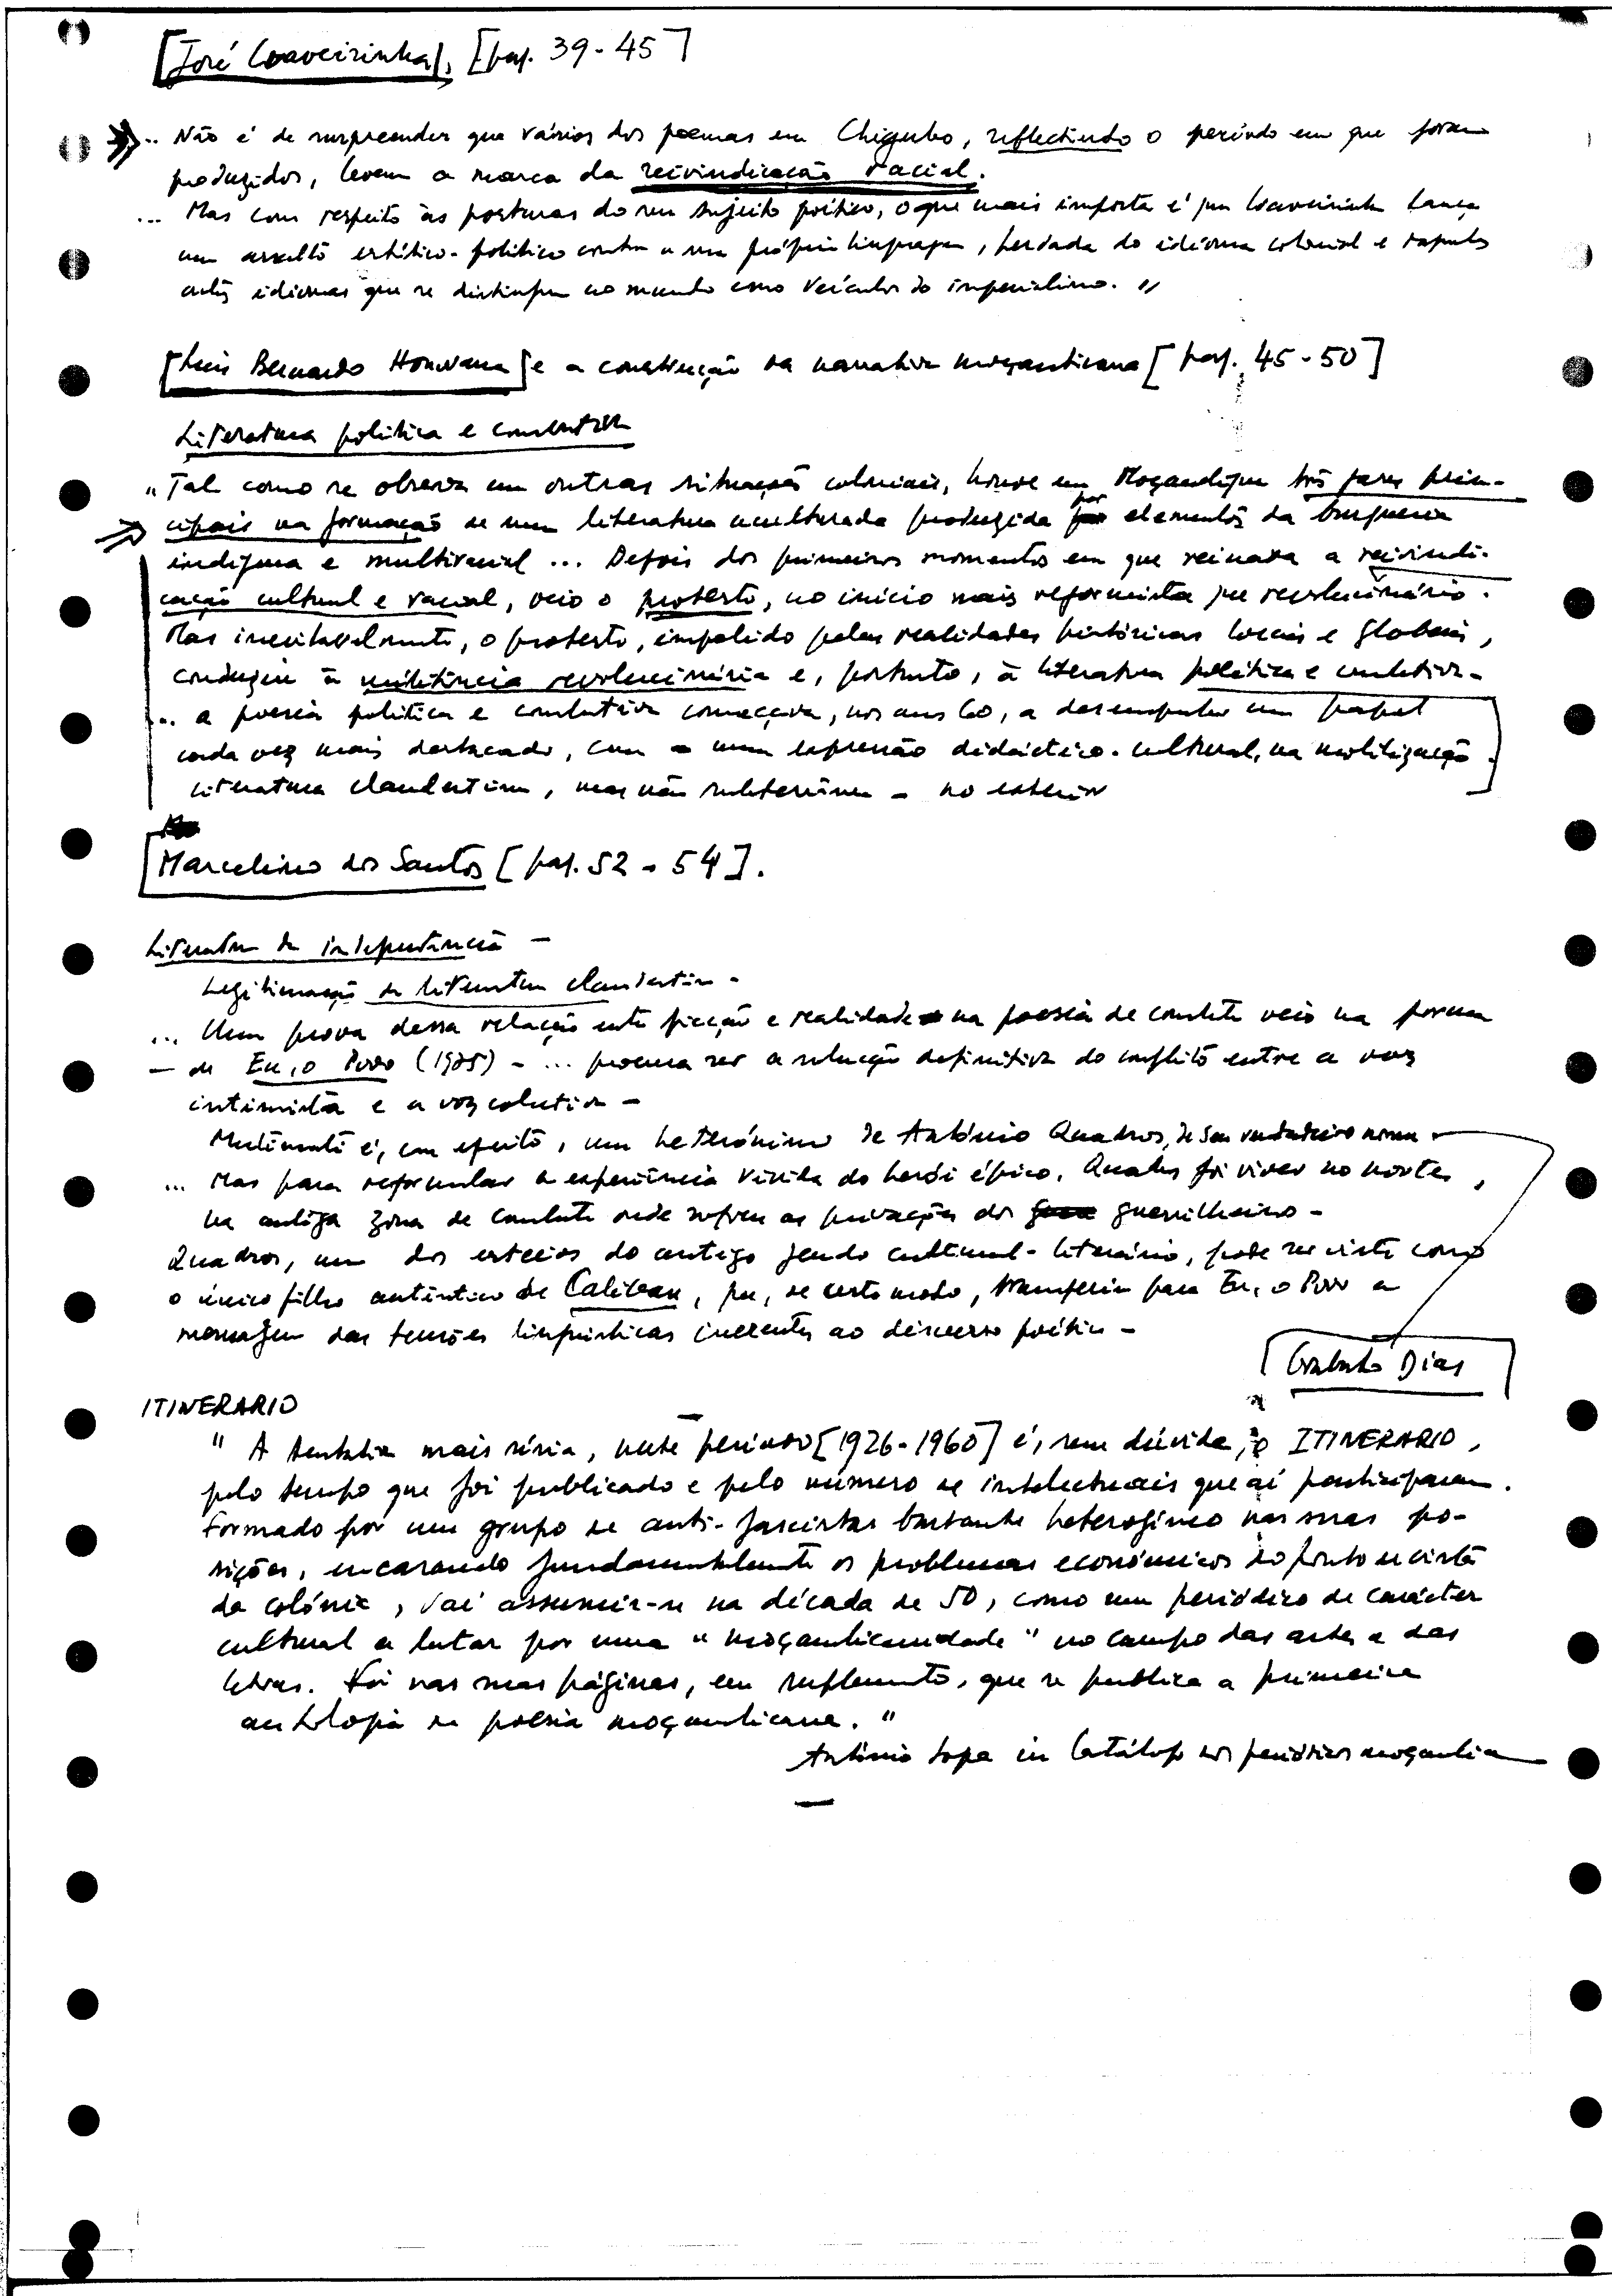 [José Craveirinha], [pag. 39-45]
... Não é de surpreender que vários dos poemas em Chigubo, reflectindo o período em que foram
produzidos, levem a marca da reivindicação racial.
... Mas com respeito às posturas do seu sujeito poético, o que mais importa é que Craveirinha lança
um assalto estético-político contra a sua própria linguagem, herdada do idioma colonial e
outros idiomas que se distinguem no mundo como veículos do imperialismo. "
[Luís Bernardo Honwana] e a construção da narrativa moçambicana [pag. 45-50]
Literatura política e combativa
"Tal como se observa em outras situações coloniais, houve em Moçambique três fases prin-
cipais na formação de uma literatura aculturada produzida por elementos da burguesia
indígena e multiracial ... Depois dos primeiros momentos em que reinava a reivindi-
cação cultural e racial, veio o protesto, no início mais reformista que revolucionário.
Mas inevitavelmente, o protesto, impelido pelas realidades históricas locais e globais,
conduziu à militância revolucionária e, portanto, à literatura política e combativa -
... a poesia política e combativa começava, nos anos 60, a desempenhar um papel
cada vez mais destacado, com uma expressão didáctico-cultural, na mobilização.
Literatura clandestina, mas não subterrânea - no exterior
[Marcelino dos Santos [pag. 52 - 54].
Literatura da independência -
Legitimação da literatura clandestina -
... Uma prova dessa relação entre ficção e realidade na poesia de combate veio na forma
- de Eu, o Povo (1975) - ... procura ser a solução definitiva do conflito entre a voz
intimista e a voz colectiva -
Mutimati é, com efeito, um heterónimo de António Quadros, de seu verdadeiro nome
... Mas para reformular a experiência vivida do herói épico, Quadros foi viver no norte,
na antiga zona de combate onde sofreu as privações dos guerrilheiros -
Quadros, um dos esteios do antigo feudo cultural-literário, pode ser visto como
o único filho autêntico de Caliban, que, de certo modo, transferiu para Eu, o Povo a
mensagem das tensões linguísticas inerentes ao discurso poético -
[Grabato Dias]
ITINERARIO
" A tentativa mais séria, neste período [1926-1960] é, sem dúvida, o ITINERARIO,
pelo tempo que foi publicado e pelo número de intelectuais que aí participaram.
Formado por um grupo de anti-fascistas bastante heterogéneo nas suas po-
sições, encarando fundamentalmente os problemas económicos do ponto de vista
da colónia, vai assumir-se na década de 50, como um periódico de carácter
cultural a lutar por uma "moçambicanidade" no campo das artes e das
letras. Foi nas suas páginas, em suplemento, que se publica a primeira
antologia de poesia moçambicana. "
António Sopa in Catálogo dos periódicos moçambicanos